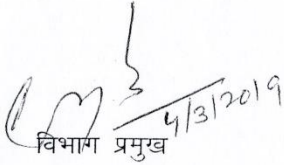 4/3/2019
विभाग प्रमुख